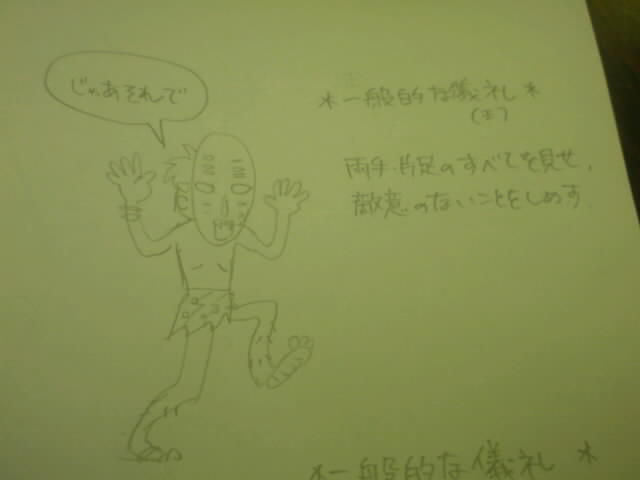 じゃあそれで
*一般的な儀礼*
両手・片足のすべてを見せ、
敵意のないことをしめす.
*一般的な儀礼 *